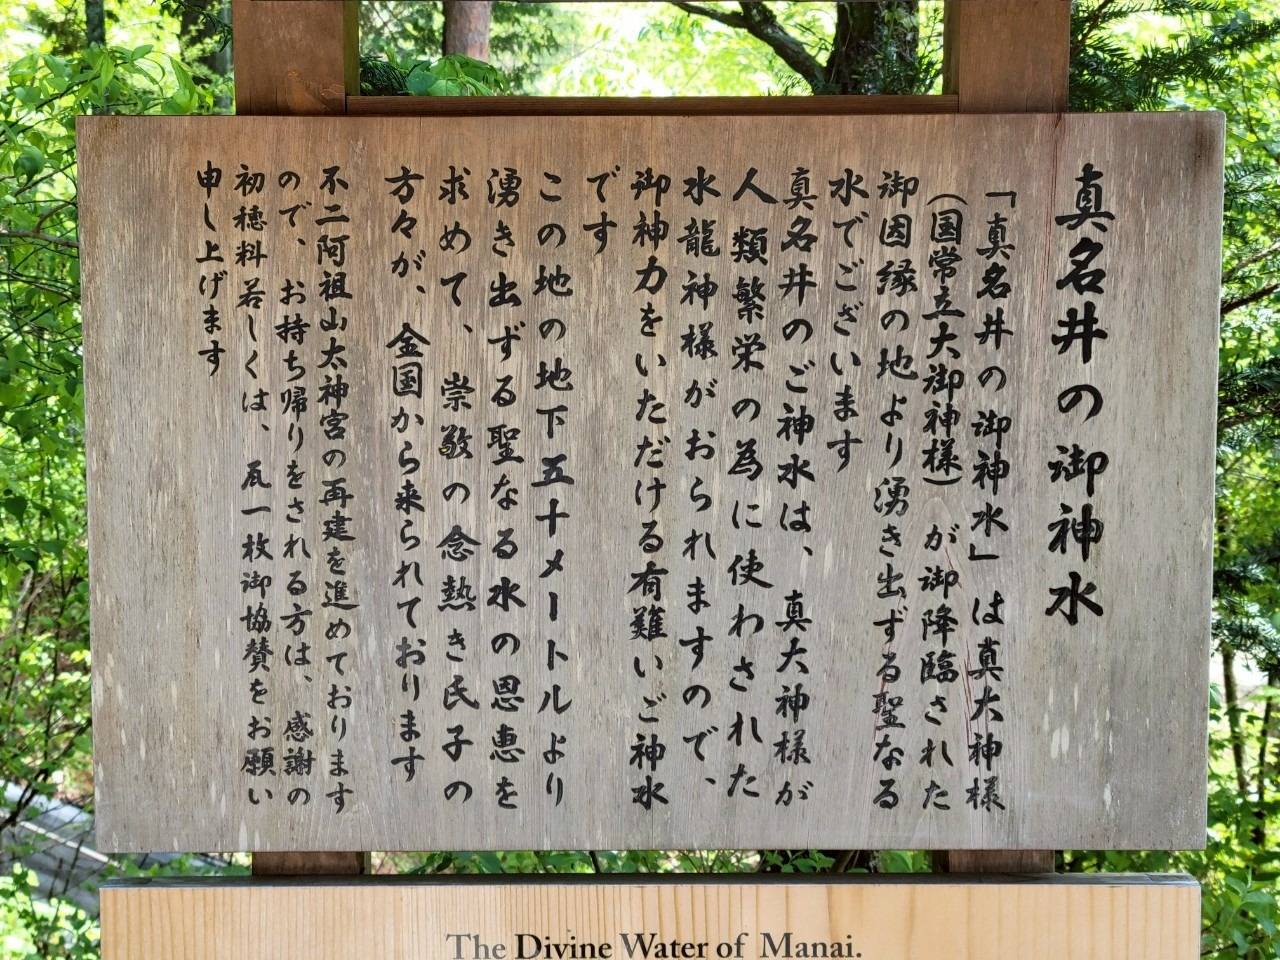 真名井の御神水
「真名井の御神水」は真大神様
（国常立大御神様）が御降臨された
御因縁の地より湧き出ずる聖なる
水でございます
真名井のご神水は、真大神様が
人類繁栄の為に使わされた
水龍神様がおられますので、
御神力をいただける有難いご神水
です
この地の地下五十メートルより
湧き出ずる聖なる水の恩恵を
求めて、崇敬の念熱き氏子の
方々が、全国から来られております
不二阿祖山太神宮の再建を進めております
ので、お持ち帰りをされる方は、感謝の
初穂料若しくは、瓦一枚御協賛をお願い
申し上げます
The Divine Water of Manai.